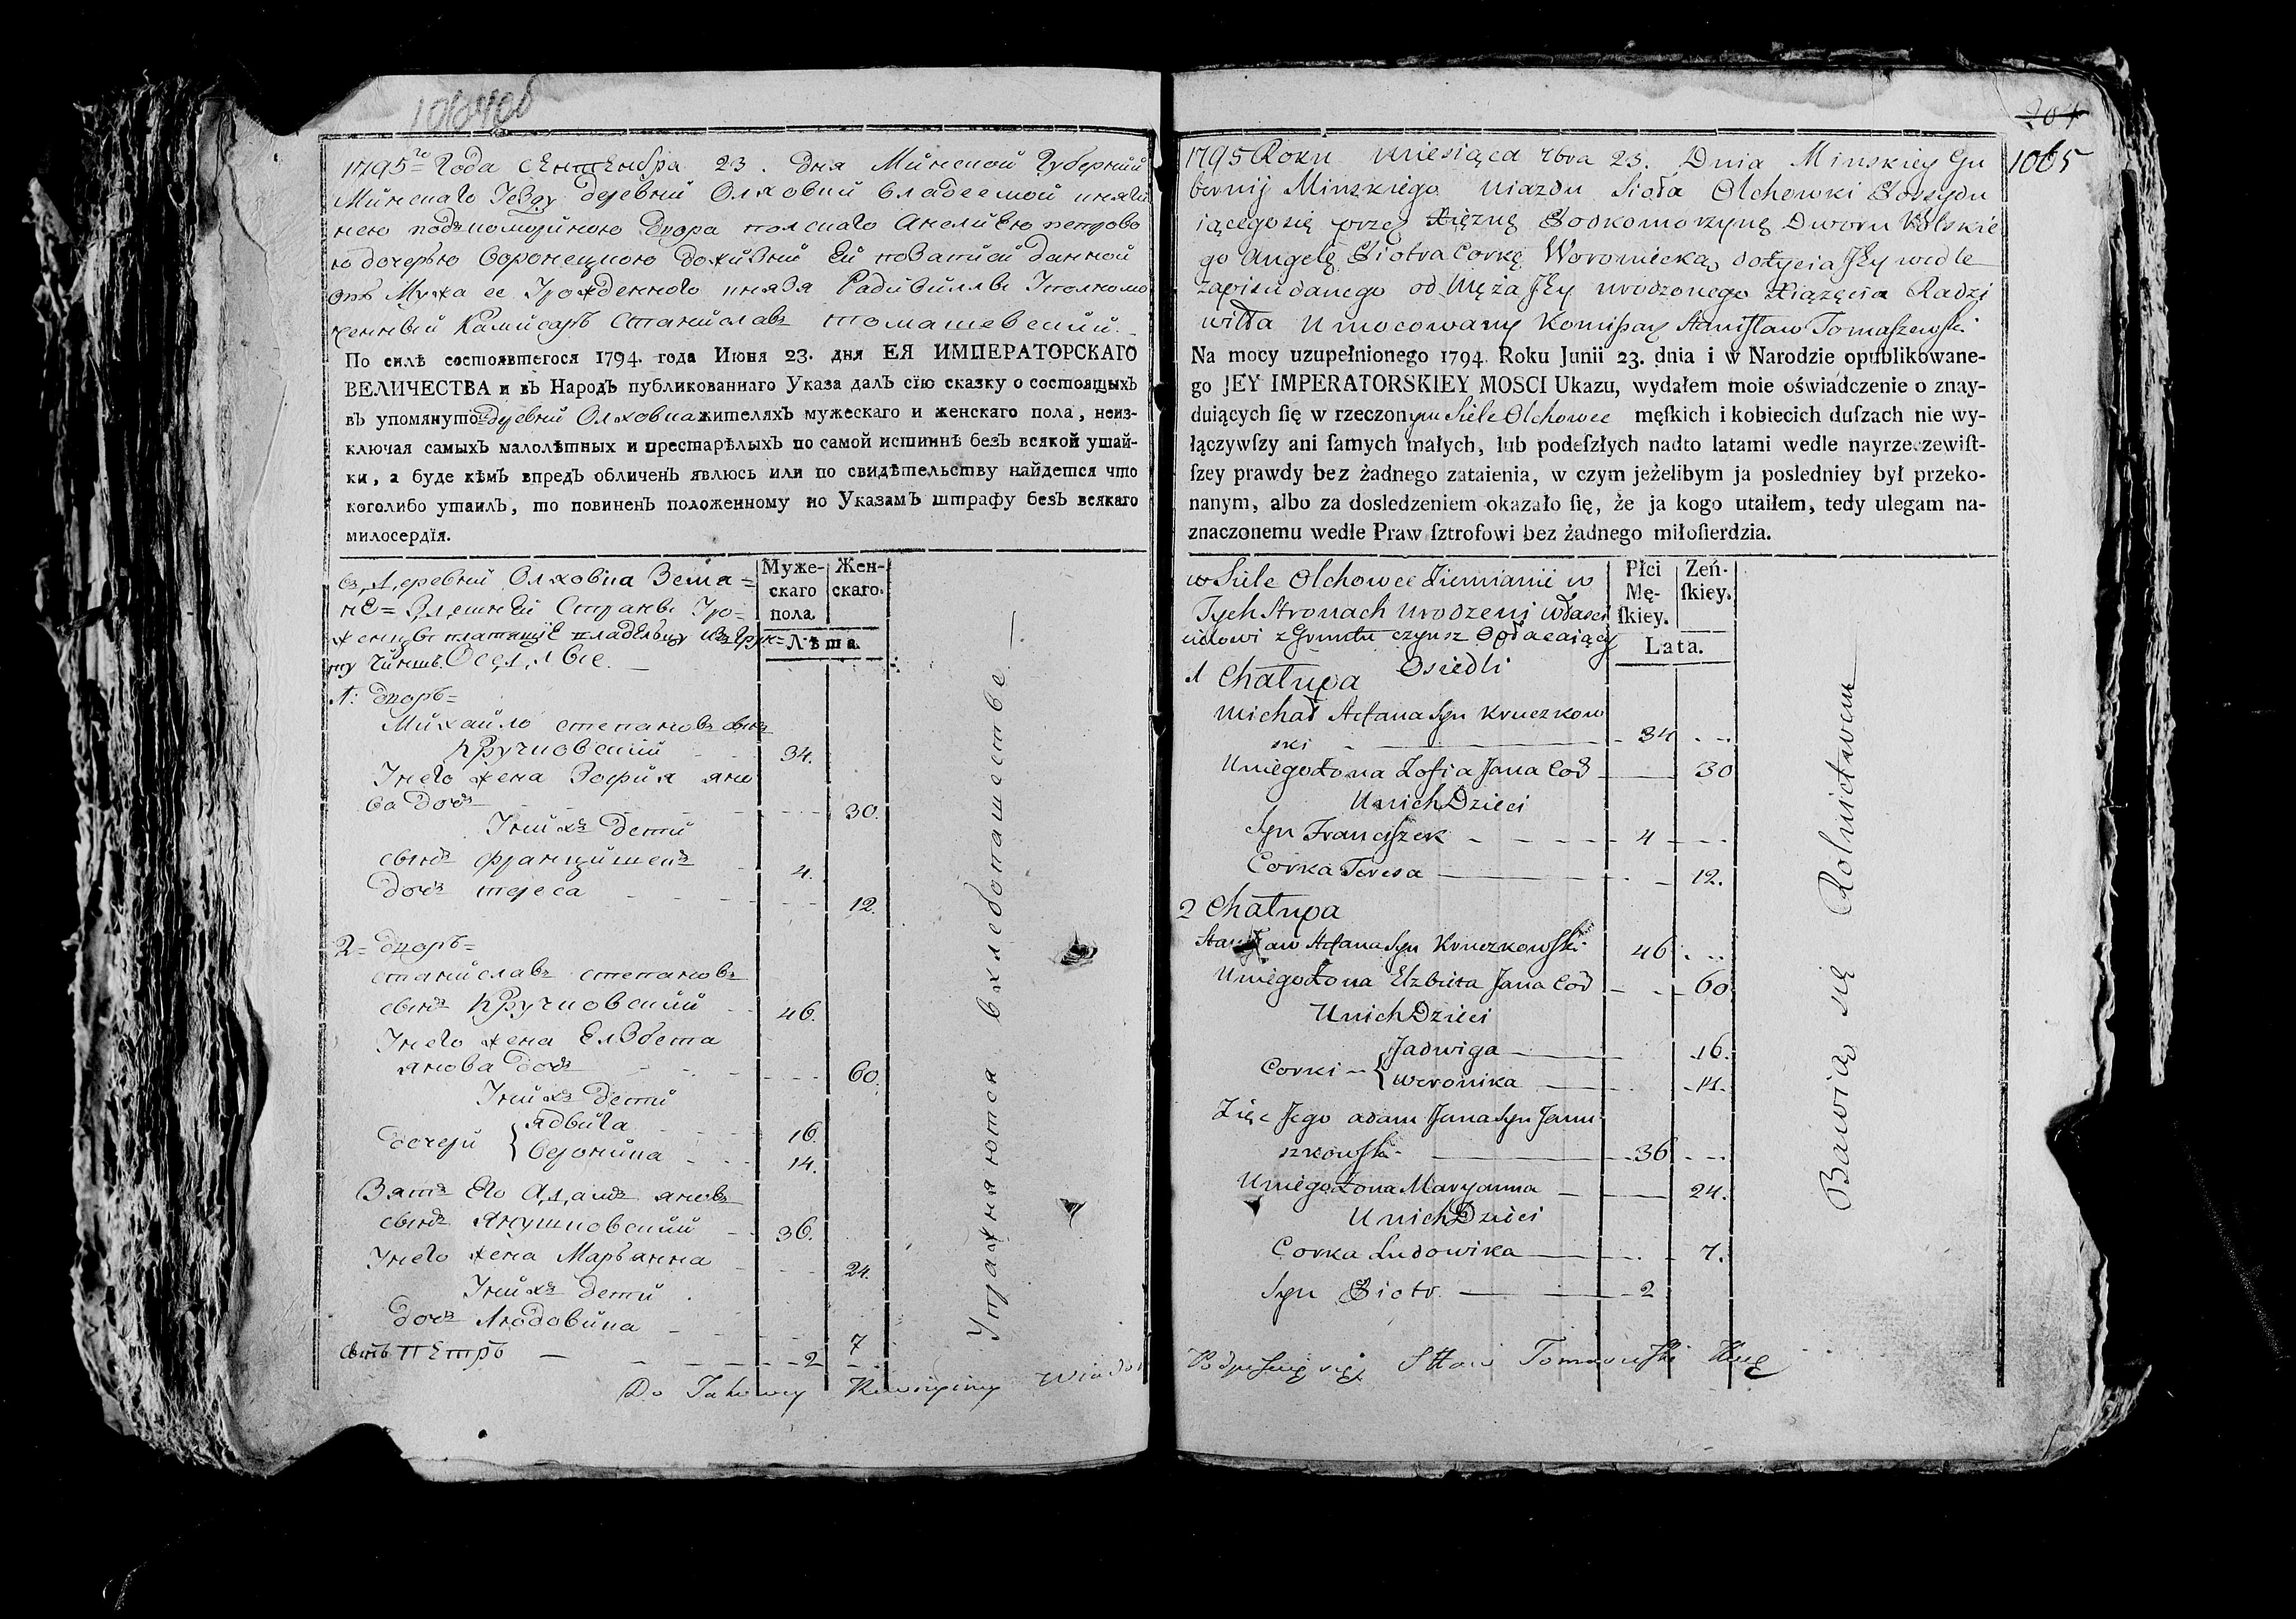 1064об
1795го Года сентенбра 23. дня Минской Губернии
Минскаго деревни Олховки владеемой княги
нею подкомориною двора полскаго Анелиею петрово
ю дочерью Воронецкою Ей данной
отъ Мужа ее князя Радивиллы
Камисаръ Станиславъ томашевский.
По силѣ состоявшегося 1794. года Июня 23. дня ЕЯ ИМПЕРАТОРСКАГО
ВЕЛИЧЕСТВА и вЪ НародЪ публикованнаго Указа далЪ сїю сказку о состоящыхЪ
вЪ упомянуто деревни Олховка жителяхЪ мужескаго и женскаго пола, неиз-
ключая самыхЪ малолѣтных и престарѣлыхЪ по самой истиннѣ безЪ всякой утай-
ки, а буде кѣмЪ впредЪ обличенЪ явлюсь или по свидѣтельству найдется что
коголибо утаилЪ, то повиненЪ положенному по УказамЪ штрафу безЪ всякаго
милосердїя.
Муже-
скаго
пола
Жен-
скаго.
Лѣта.
въ деревни Олховка Земя=
не=
чиншъ.
1: дворъ=
Михайло степановъ сынъ
Кручковский 34.
Унего жена Зофия яно
ва дочъ 30.
Унихъ дети
сынъ францишекъ 4.
дочъ тереса 12.
2= дворъ=
станиславъ степановъ
сынъ Кручковский 46.
Унего жена Елзбета
янова дочъ 60.
Унихъ дети
дочери { ядвига 16.
вероника 14.
Зять Его Адамъ яновъ
сынъ Янушковский 36.
Унего жена Марьянна 24.
Унихъ дети.
дочъ Людовика 7
сынъ петръ 2
Упражняются вхлебопашестве
Do Takowey Rewizyiney
204
1065
1795 Roku Miesiąca 7bra 23. Dnia Minskiey Gu
bernij Minskiego Uiazdu Sioła Olchowki Possydu
iącegosię przez Xięznę Podkomorzynę Dworu Polskie
go Angelę Piotra Corkę Woroniecką dożycia Jey wedle
zapisu danego od Męża Jey urodzonego Xiązęcia Radzi
wiłła Umocowany Komisarz Stanisław Tomaszewski
Na mocy uzupełnionego 1794. Roku Junii 23. dnia i w Narodzie opublikowane-
go JEY IMPERATORSKIEY MOSCI Ukazu, wydałem moie oświadczenie o znay-
duiących ſię w rzeczonym Siele Olchowce męſkich i kobiecich duſzach nie wy-
łączywſzy ani ſamych małych, lub podeſzłych nadto latami wedle nayrzeczewiſt-
ſzey prawdy bez żadnego zataienia, w czym jeżelibym ja posledniey był przeko-
nanym, albo za dosledzeniem okazało ſię, że ja kogo utaiłem, tedy ulegam na-
znaczonemu wedle Praw ſztrofowi bez żadnego miłoſierdzia.
Płci
Mę-
ſkiey.
Zeń-
ſkiey.
Lata.
w Siele Olchowce Ziemianie w
Tych Stronach urodzeni własci
cielowi z Gruntu czynsz Opłacaiący
Osiedli
1 Chałupa
Michał Stefana Syn Kruczkow
ski 34
Uniego Żona Zofia Jana Cod 30
Unich Dzieci
Syn Franciszek 4
Corka Teresa 12.
2 Chałupa
Stanisław Stefana Syn Kruczkowski 46
Uniego Żona Elzbieta Jana Cod 60
Unich Dzieci
Corki { Jadwiga 16.
Weronika 14.
Zięc Jego Adam Jana Syn Janu
szkowski 36
Uniego Żona Maryanna 24.
Unich Dzieci
Corka Ludowika 7.
Syn Piotr 2
Bawią się Rolnictwem
Podpisuię się Stław Tomaszewski